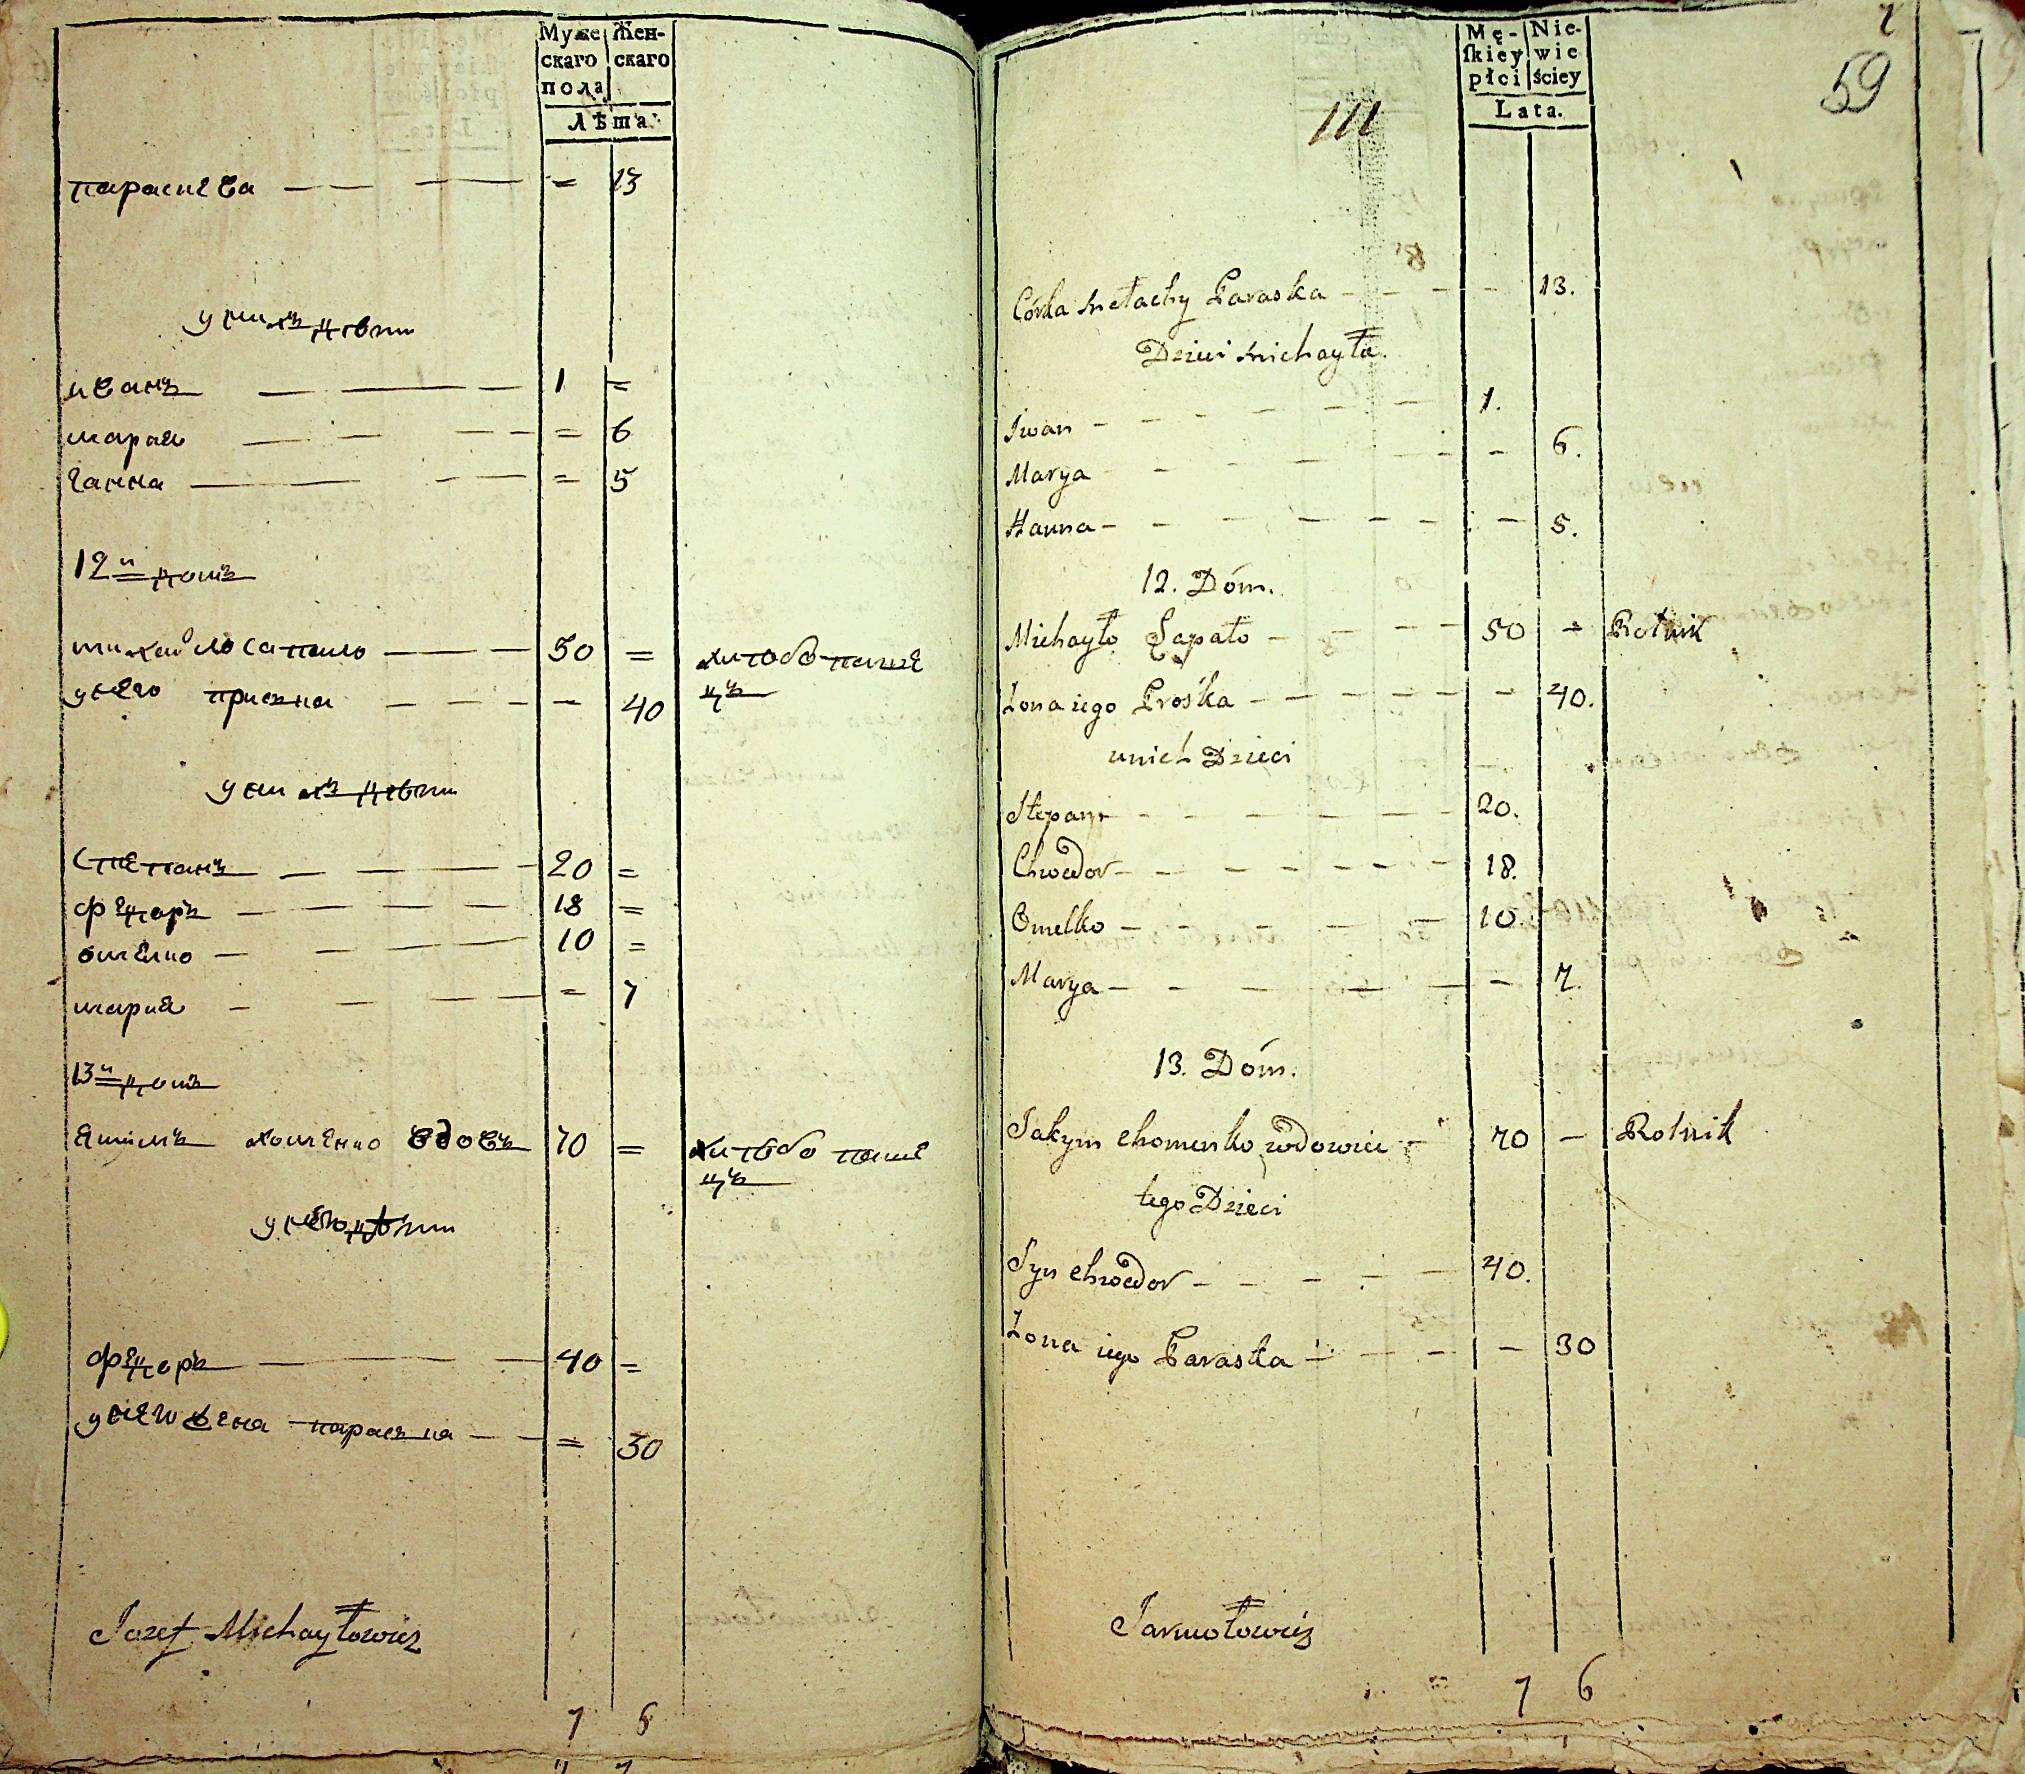 Муже Жен-
скаго скаго
пола
Лѣта.
параскева — — — = 13
у них дѣти
иванъ — — — 1 =
марая — — — = 6
ганна — — — = 5
12й домъ
михайло сапало — — — 50 = хлѣбопаше
цъ
у негоприська — — — = 40
у них дѣти
степанъ — — — 20 =
федоръ — — — 18 =
омелко — — — 10 =
мария — — — = 7
13й домъ
якимъ хоменко вдовъ 70 = хлѣбопаше
цъ
у него дѣти
федоръ — — — 40 =
у него жена параска — — = 30
Jozef Michayłowicz
7 6
Mę- Nie-
ſkiey wie
płci ściey
Lata.
59
111
Córka Paraska — — — 13.
Dzieci Michayła.
Iwan — — — 1.
Marya — — — 6.
Hanna — — — 5.
12. Dóm.
Michayło Sapało — — — 50 — Rolnik
Żona iego Prośka — — — 40.
unich Dzieci
Stepan — — — 20.
Chwedor — — — 18.
Omelko — — — 10.
Marya — — — 7.
13. Dóm.
Jakym Chomenko wdowiec — 70 — Rolnik
tego Dzieci
Syn Chwedor — — — 40.
Żona iego Paraska — — — 30
Jarmołowicz
7 6